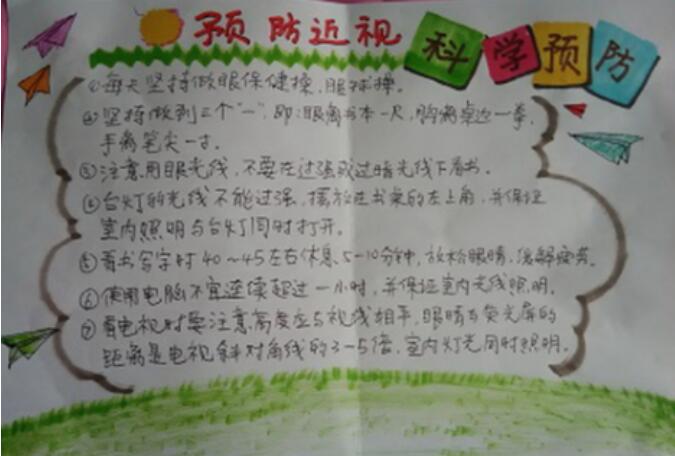 预防近视
科学预防
①每天坚持做眼保健操,眼球操。
②坚持做到三个"一",即:眼离书本一尺,胸离桌边一拳,
手离笔尖一寸。
③注意用眼光线,不要在过强或过暗光线下看书。
④台灯的光线不能过强,摆放在书桌的左上角,并保证
室内照明与台灯同时打开。
⑤看书写字时40~45左右休息5-10分钟,放松眼睛,缓解疲劳。
⑥使用电脑不宜连续超过一小时,并保证室内光线照明。
⑦看电视时要注意高度应与视线相平,眼睛与荧光屏的
距离是电视斜对角线的3-5倍,室内灯光同时照明。